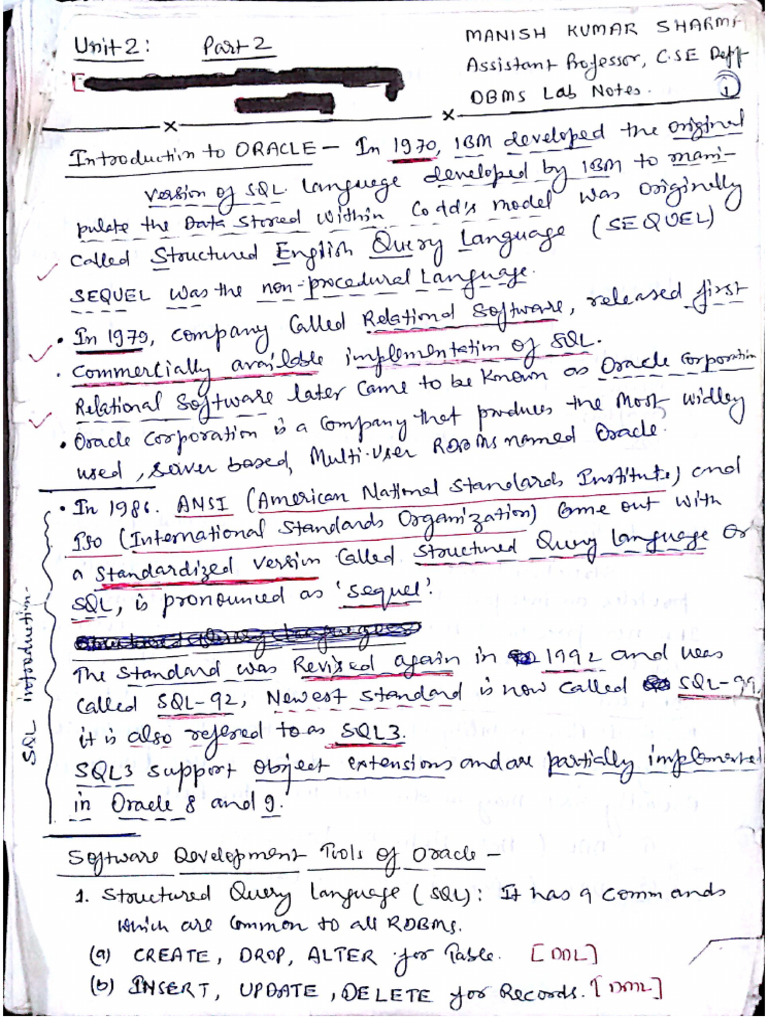 Unit 2: Part 2
MANISH KUMAR SHARMA
Assistant Professor, CSE Deptt
DBMS Lab Notes. 1
Introduction to ORACLE - In 1970, IBM developed the original
version of SQL. Language developed by IBM to mani-
pulate the Data stored within Codd's model was originelly
called Structured English Query Language (SEQUEL)
SEQUEL was the non-procedural Language.
• In 1979, company called Relational Software, released first
• Commercially available implementation of SQL.
Relational Software later came to be known as Oracle Corporation
• Oracle Corporation is a company that produces the most widley
used, server based, Multi-user RDBMS named Oracle.
• In 1986. ANSI (American National Standards Institute) and
ISO (International Standards Organization) Come out with
a Standardized version called Structured Query language or
SQL, is pronounced as 'sequel'.
The Standard was Revised again in 1992 and was
called SQL-92, Newest standard is now called SQL-99
it is also refered to as SQL3.
SQL3 support object extensions and are partially implemented
in Oracle 8 and 9.
SQL introduction-
Software Development Tools of Oracle -
1. Structured Query Language (SQL): It has 9 Commands
which are common to all RDBMS.
(a) CREATE, DROP, ALTER for Table. [DDL]
(b) INSERT, UPDATE, DELETE for Records. [DML]